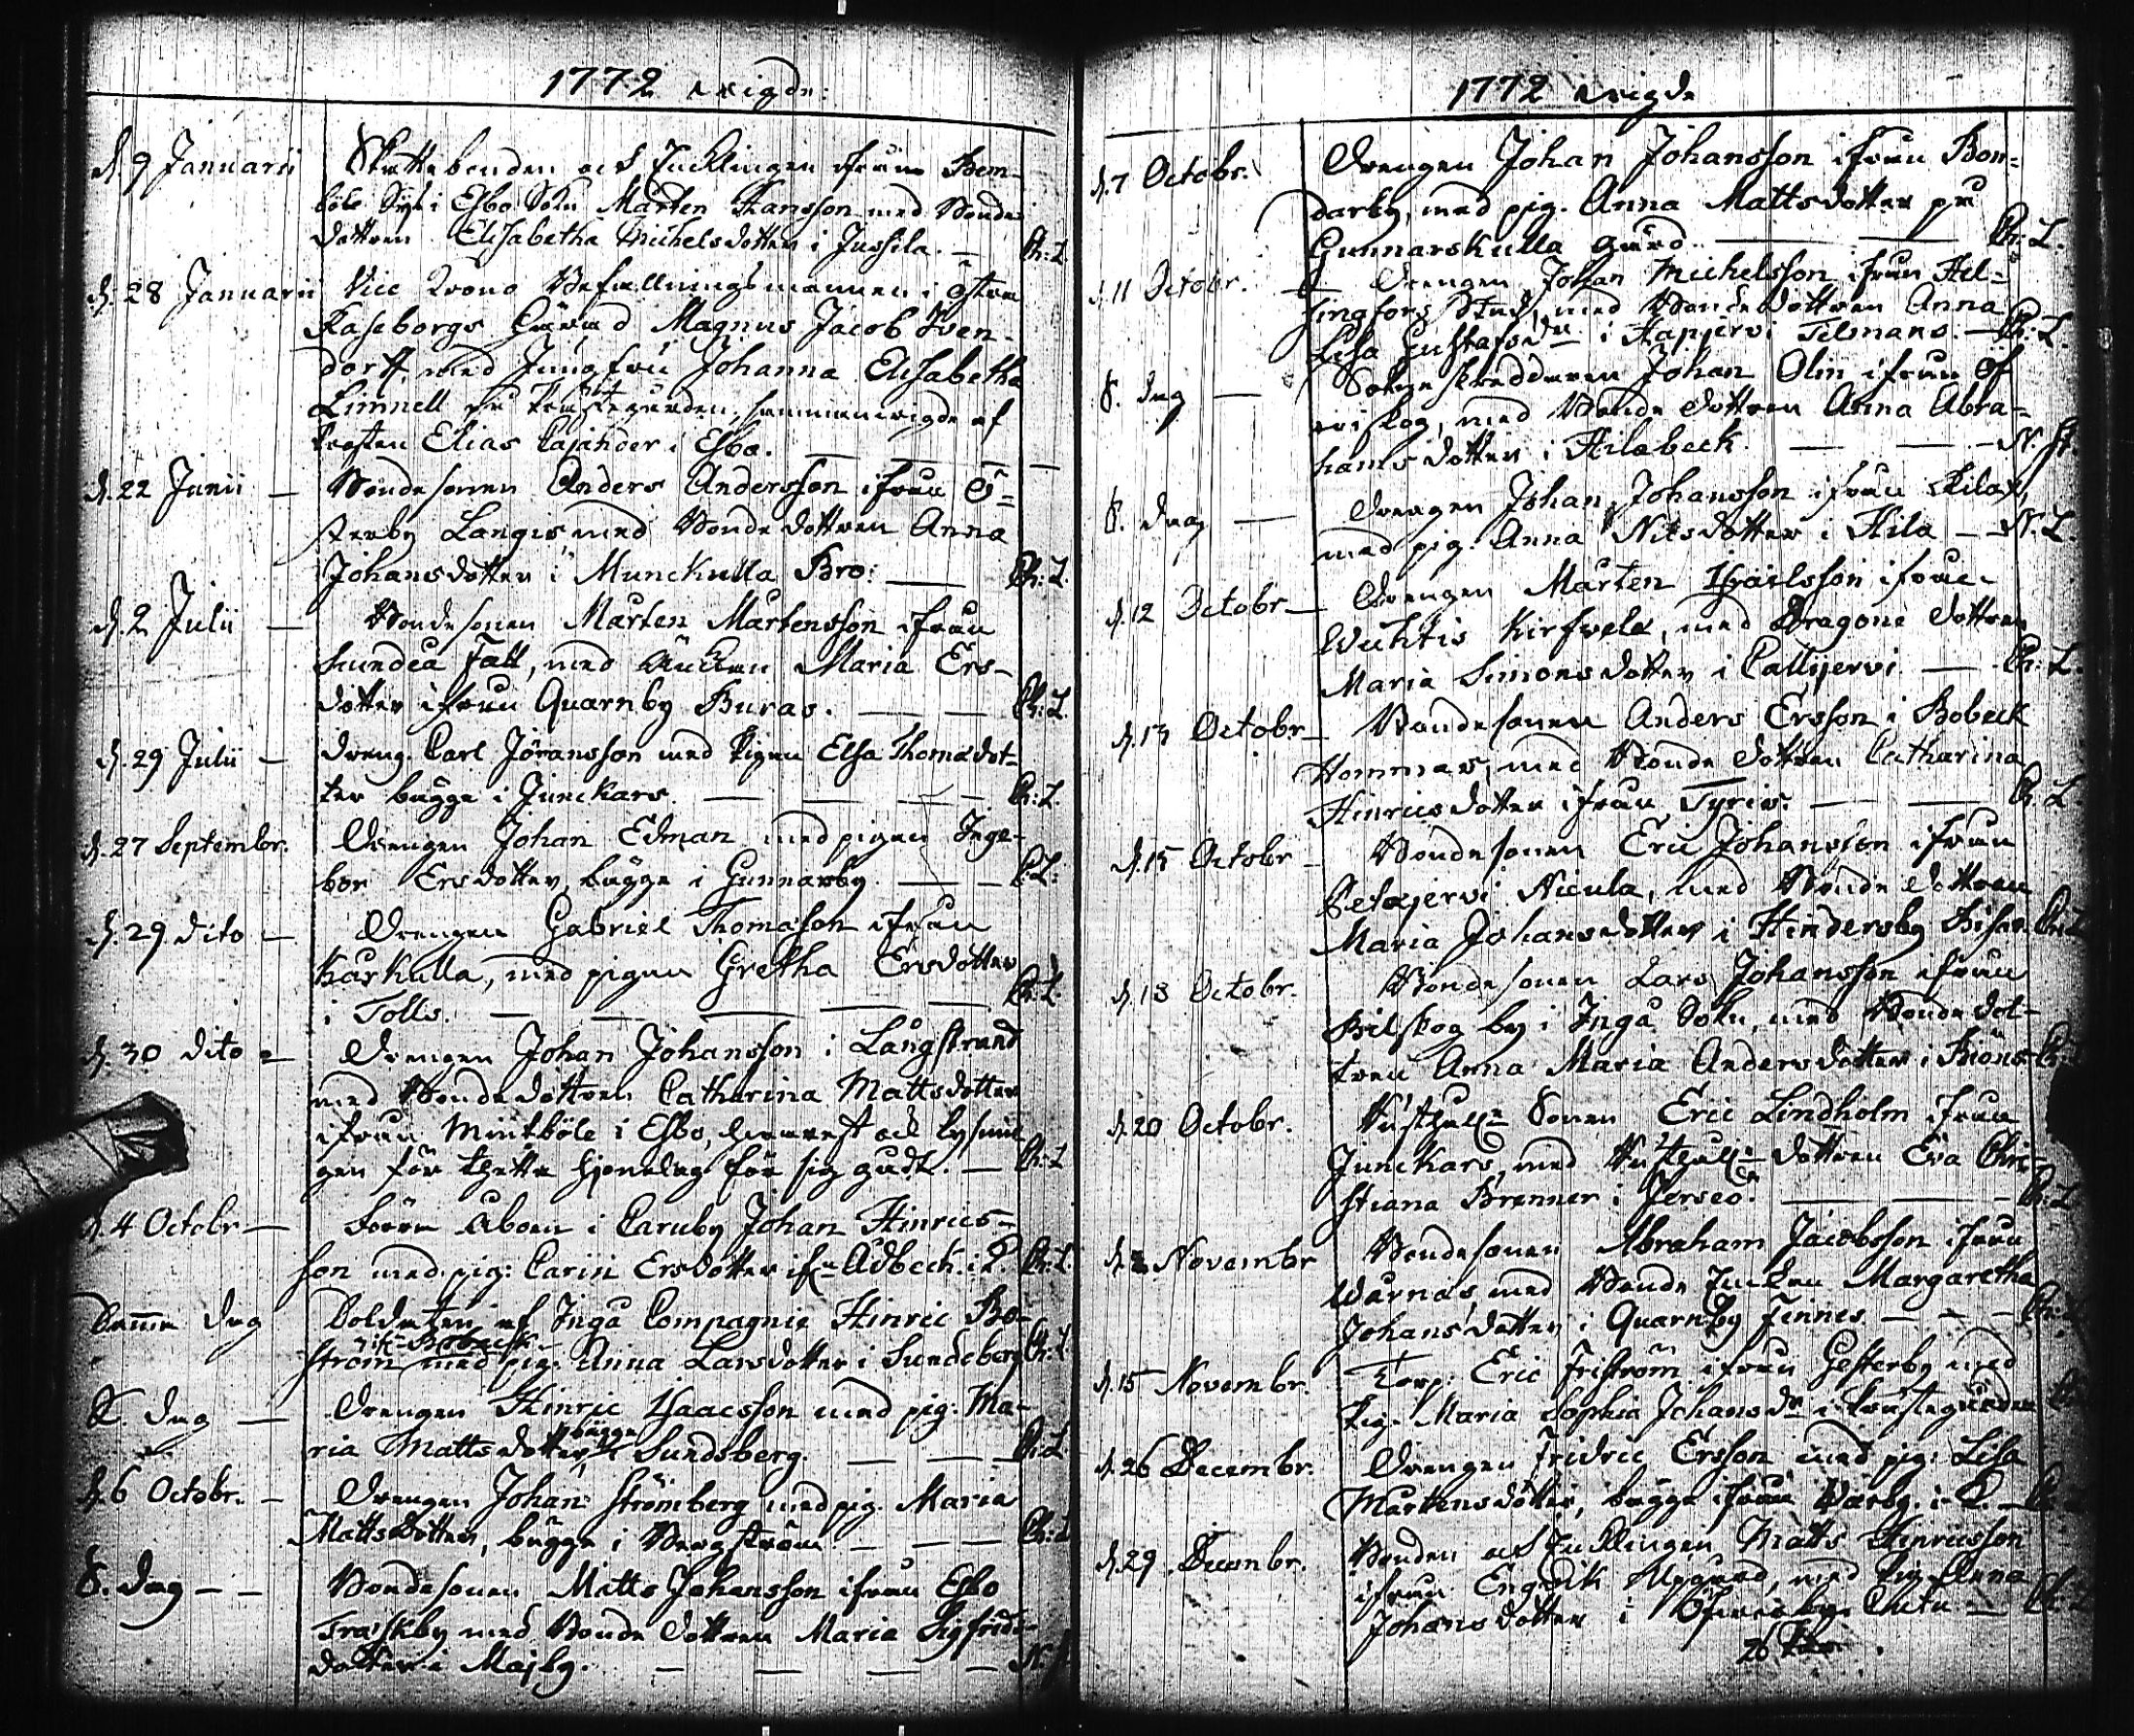 1772 wigde.
d. 9 Januarii Skattebonden och Encklingen ifrån Bem-
böle By i Esbo Sokn Mårten Hansson med Bonde
dottren Elisabetha Michelsdotter i Jussila. — Ch: L.
d. 28 Januarii Vice Krono Befallningsmannen i Östra
Raseborgs Härad Magnus Jacob
dorff, med Jungfru Johanna Elisabetha
Limnell på Prästegården, sammanwigde af
Prosten Elias Cajander i Esbo. — — —
d. 22 Junii — Bondesonen Anders Andersson ifrån Ö-
sterby Langis med Bonde dottren Anna
Johansdotter i Munckulla Bro: — Ch: L.
d. 2 Julii — Bondesonen Mårten Mårtensson ifrån
Sundea Fall, med Änckan Maria Ers-
dotter ifrån Quarnby Buras. — — Ch: L.
d. 29 Julii — Dreng. Carl Jöransson med Pigan Elsa Thomædot-
ter bägge i Junckars. — — — Ch: L.
d. 27 Septembr. Drengen Johan Edman med pigan Inge-
bor Ersdotter, bägge i Gunnarby. — — C: L:
d. 29 dito — Drengen Gabriel Thomasson ifrån
Kärkulla, med pigan Gretha Ersdotter
i Tolls. — — — — Ch: L.
d. 30 dito — Drengen Johan Johansson i Långstrand
med Bonde dottren Catharina Mattsdotter
ifrån Mintböle i Esbo, hwarest ock lysnin
gen för thetta hjonelag för sig gådt. — Ch: L
d. 4 Octobr — Åboen i Caruby Johan Hinrics-
son med pig: Carin Ersdotter ifr. Adbeck i K. Ch: L.
Samma dag Soldaten af Ingå Compagnie Hinric Bo-
ifr. Bobäck
ström med pig. Anna Larsdotter i Sundsberg Ch: L
S. dag — Drengen Hinric Isaacsson med pig. Ma-
bägge
ria Mattsdotter, i Sundsberg. — — Ch: L
d. 6 Octobr. — Drengen Johan Strömberg med pig. Maria
Mattsdotter, bägge i Bergström. — — — Ch: L
S. dag — — Bondesonen Matts Johansson ifrån Esbo
Träskby med Bonde dottren Maria Sigfrids-
dotter i Majby. — — — — N.
1772 wigde
d. 7 Octobr. Drengen Johan Johansson ifrån Bon-
darby, med pig. Anna Mattsdotter på
Gunnarskulla gård. — — Ch: L.
d. 11 Octobr. — Drengen Johan Michelsson ifrån Hel-
singfors Stad, med Bonde dottren Anna
Lisa Gustafsdr i Hapjervi Tilmans. — Ch: L.
S. dag — Sokneskreddaren Johan Olin ifrån Öf
witskog, med Bonde dottren Anna Abra-
hamsdotter i Hilabeck. — — — N. St.
S. dag — Drengen Johan Johansson ifrån Kila,
med pig. Anna Nilsdotter i Hila — N. L.
d. 12 Octobr — Drengen Mårten Israelsson ifrån
Wuhtis Kirfwela, med Dragone dottren
Maria Simonsdotter i Callijervi — Ch: L.
d. 13 Octobr — Bondesonen Anders Ersson i Bobeck
Hommas, med Bonde dottren Catharina
Hinricsdotter ifrån Tyris. — — Ch: L.
d. 15 Octobr — Bondesonen Eric Johansson ifrån
Petajervi Nicula, med Bonde dottren
Maria Johansdotter i Hindersby Bisas. Ch: L
d. 18 Octobr. Bondesonen Lars Johansson ifrån
Bilskog by i Ingå Sokn, med Bonde dot-
tren Anna Maria Andersdotter i Biöns Ch: L
d. 20 Octobr. Rusthåll: Sonen Eric Lindholm ifrån
Junckars, med Rusthåll: dottren Eva Chri-
stiana Brenner i Jerseo. — — — Ch: L
d. 2 Novembr Bondesonen Abraham Jacobsson ifrån
Warnäs med Bonde Enckan Margaretha
Johansdotter i Quarnby Finnes — — — Ch: L
d. 15 Novembr. Torp. Eric Friström ifrån Gesterby med
Pig. Maria Sophia Johansdr i Prästegården
d. 26 Decembr. Drengen Fridric Ersson med pig: Lisa
Mårtensdotter, bägge ifrån Wårby i K. —
d. 29 Decembr. Bonden och Encklingen Matts Hinricsson
ifrån Engwik Uppgård, med Anna
Johansdotter i Öfwitsby — Ch: L
26 Par.